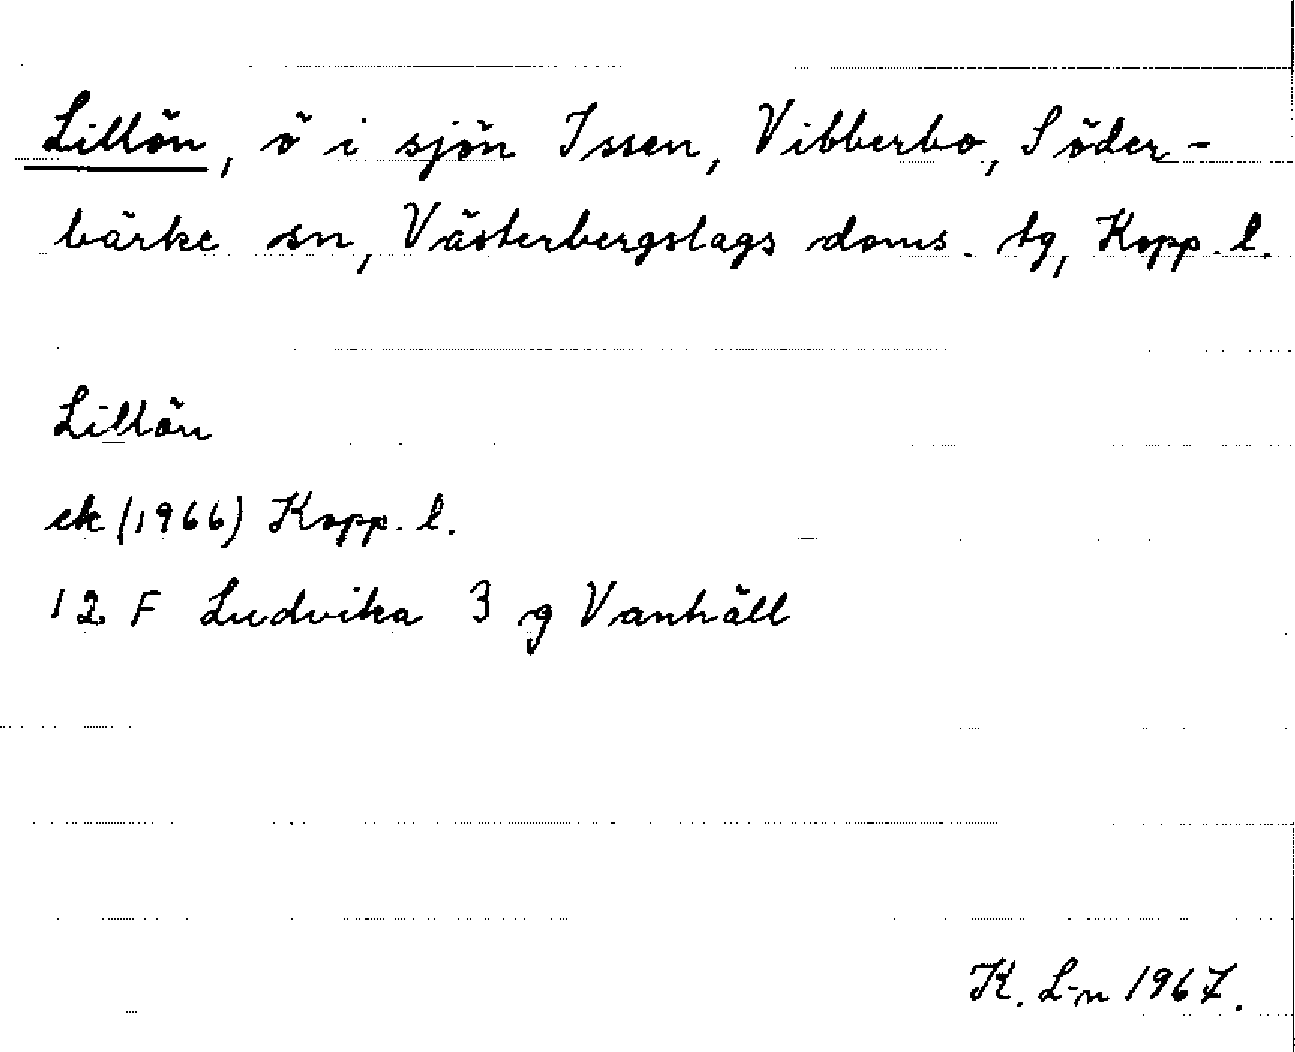 Lillön, ö i sjön Issen, Vibberbo, Söder-
bärke sn, Västerbergslags doms. tg, Kopp. l.
Lillön
ek (1966) Kopp. l.
12 F Ludvika 3 g Vanhäll
K. L-n 1967.